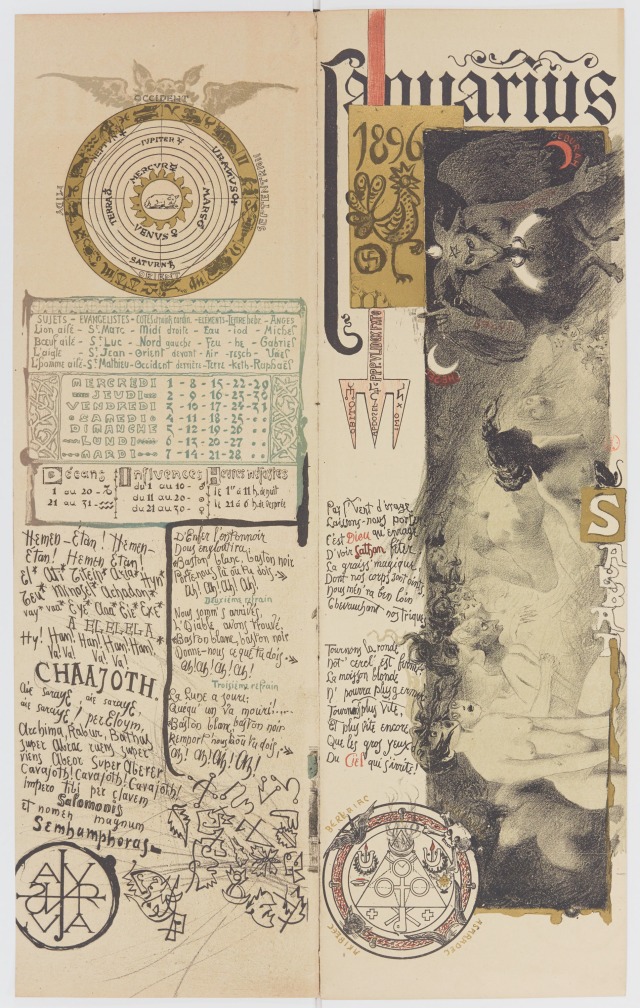 OCCIDENT
JUPITER
URANUS
MERCURE
MARS
TERRE
VENUS
SATURN
MIDI
SEPTENTRION
SUJETS - EVANGELISTES -
Lion ailé - St Marc - Midi droite - Eau - iod - Michel
Bœuf ailé - St Luc - Nord gauche - Feu - he - Gabriel
L'aigle - St Jean - Orient devant - Air - resch -
L'homme ailé - St Mathieu - Occident derrière - Terre - keth - Raphaël
MERCREDI 1 - 8 - 15 - 22 - 29
JEUDI 2 - 9 - 16 - 23 - 30
VENDREDI 3 - 10 - 17 - 24 - 31
SAMEDI 4 - 11 - 18 - 25
DIMANCHE 5 - 12 - 19 - 26
LUNDI 6 - 13 - 20 - 27
MARDI 7 - 14 - 21 - 28
Décans Influences Heures néfastes
1 au 20 - du 1 au 10 - le 1er à 11 h. de nuit
21 au 31 - du 11 au 20 - le 21 à 6 h. de
du 21 au 30 -
Hemen-Etan! Hemen-
Etan! Hemen Etan!
El* Titeip* Azia* Hyn*
Teu* Minosel* Achadon*
vay* vaa* Eye* Aaa* Eie* Exe*
A EL EL EL A
Hy! Hau! Hau! Hau! Hau!
Va! Va! Va! Va!
CHAAJOTH.
Aie Saraye, aie saraye,
aie saraye! per Eloym,
Archima, Rabur, Bathas
super Abrac ruens super
viens Abeor Super Aberer
Cavajoth! Cavajoth! Cavajoth!
impero tibi per clavem
Salomonis
et nomen magnum
Semhamphoras
D'Enfer l'entonnoir
Nous engloutira;
Baston blanc, baston noir
Porte-nous là où tu dois
Ah! Ah! Ah! Ah!
Deuxième refrain
Nous somm's arrivés,
L'Diable, avons trouvé;
Baston blanc, baston noir
Donne-nous ce que tu dois
Ah! Ah! Ah! Ah!
Troisième refrain
La Ruse a souri;
Quequ'un va mouri!....
Baston blanc, baston noir
Remport'nous où tu dois
Ah! Ah! Ah! Ah!
Januarius
1896
Par l'vent d'orage
Laissons-nous porter
C'est Dieu qu'enrage
D'voir Sathan fêter
La graiss' magique
Dont nos corps sont oints
Nous mèn'ra ben loin
Chevauchant nos triques
Tournons la ronde
Not' cercl' est fermé
La maison blonde
N' pourra plus
Tournons plus vite,
Et plus vite encore
Que les gros yeux
Du Ciel qui s'irrite!
S
ASMODEE